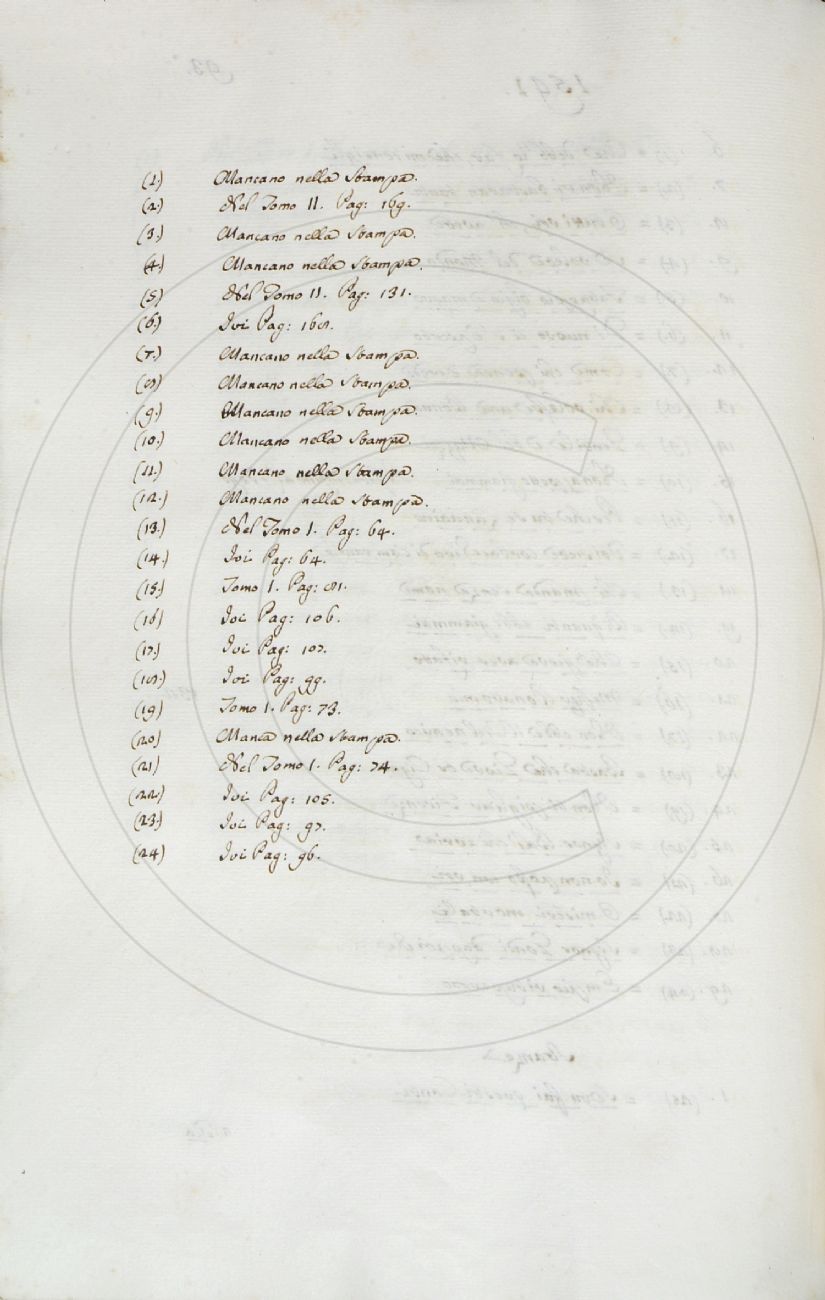 (1.) Mancano nella Stampa.
(2.) Nel Tomo II. Pag: 169.
(3.) Mancano nella Stampa.
(4.) Mancano nella Stampa.
(5) Nel Tomo II. Pag: 131.
(6.) Ivi Pag: 168.
(7.) Mancano nella Stampa.
(8) Mancano nella Stampa.
(9.) Mancano nella Stampa.
(10.) Mancano nella Stampa.
(11.) Mancano nella Stampa.
(12.) Mancano nella Stampa.
(13.) Nel Tomo I. Pag: 64.
(14.) Ivi Pag: 64.
(15.) Tomo I. Pag: 81.
(16) Ivi Pag: 106.
(17.) Ivi Pag: 107.
(18.) Ivi Pag: 99.
(19) Tomo I. Pag: 73.
(20) Manca nella Stampa.
(21) Nel Tomo I. Pag: 74.
(22.) Ivi Pag: 105.
(23.) Ivi Pag: 97.
(24) Ivi Pag: 96.